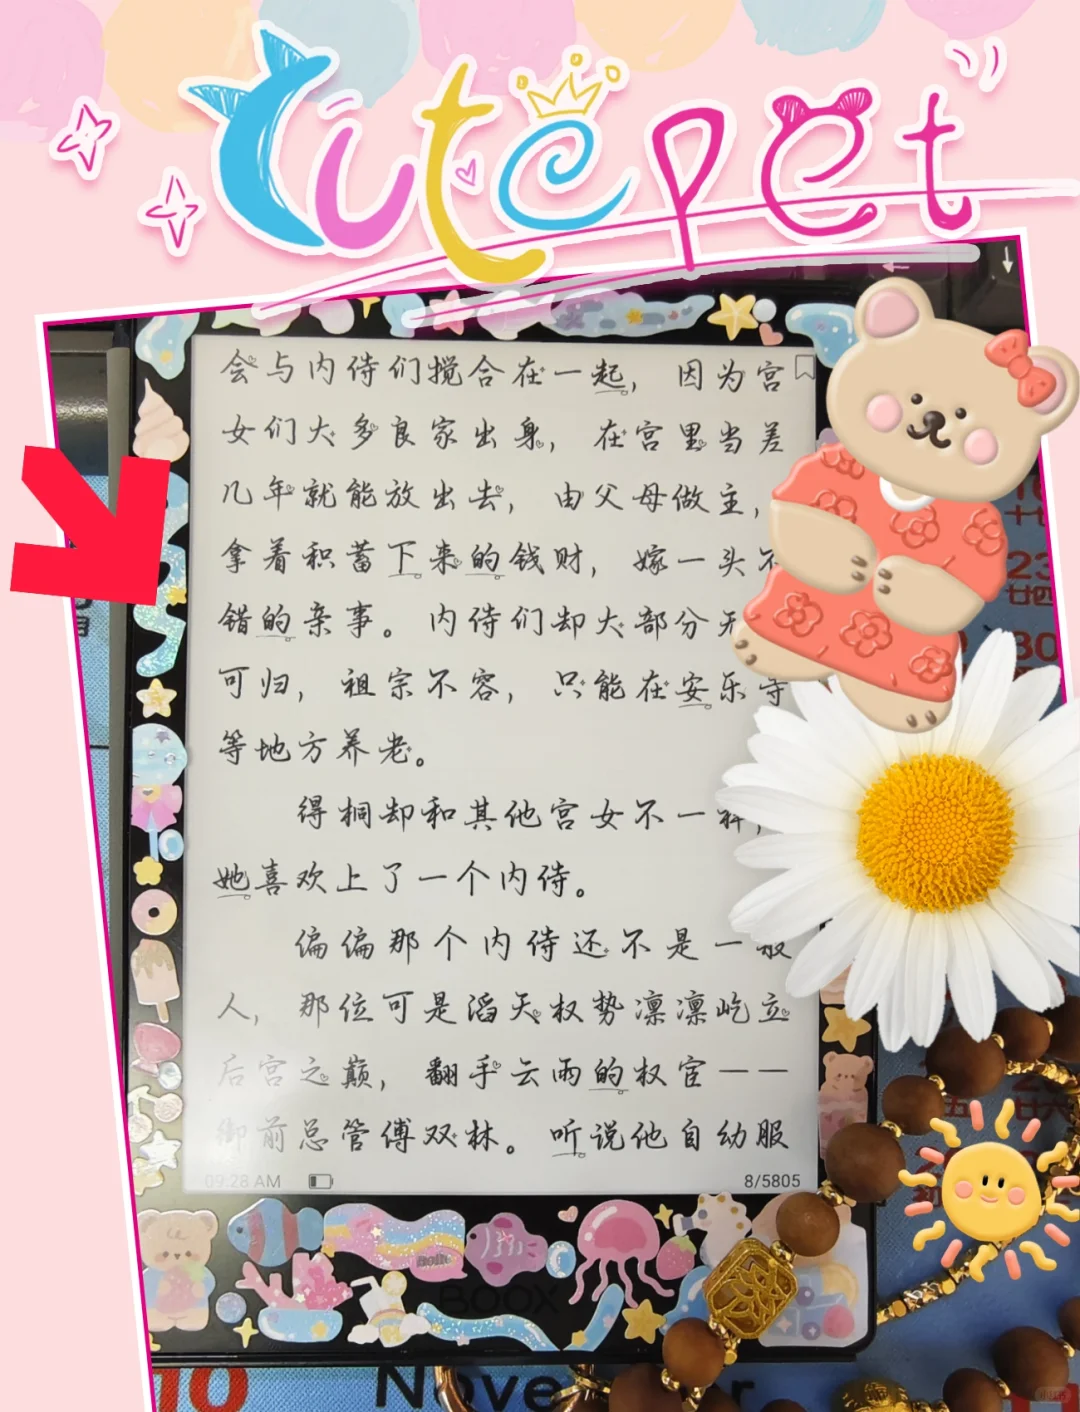 Cutepet
会与内侍们搅合在一起，因为宫
女们大多良家出身，在宫里当差
几年就能放出去，由父母做主，
拿着积蓄下来的钱财，嫁一头不
错的亲事。内侍们却大部分无
可归，祖宗不容，只能在安乐寺
等地方养老。
得桐却和其他宫女不一样，
她喜欢上了一个内侍。
偏偏那个内侍还不是一般
人，那位可是滔天权势凛凛屹立
后宫之巅，翻手云雨的权宦——
御前总管傅双林。听说他自幼服
09:28 AM
8/5805
BOOX
10
23
廿四
30